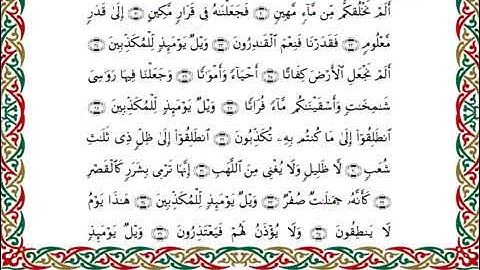 أَلَمْ نَخْلُقكُّم مِّن مَّآءٍ مَّهِينٍ ۝ فَجَعَلْنَٰهُ فِى قَرَارٍ مَّكِينٍ ۝ إِلَىٰ قَدَرٍ
مَّعْلُومٍ ۝ فَقَدَرْنَا فَنِعْمَ ٱلْقَٰدِرُونَ ۝ وَيْلٌ يَوْمَئِذٍ لِّلْمُكَذِّبِينَ ۝
أَلَمْ نَجْعَلِ ٱلْأَرْضَ كِفَاتًا ۝ أَحْيَآءً وَأَمْوَٰتًا ۝ وَجَعَلْنَا فِيهَا رَوَٰسِىَ
شَٰمِخَٰتٍ وَأَسْقَيْنَٰكُم مَّآءً فُرَاتًا ۝ وَيْلٌ يَوْمَئِذٍ لِّلْمُكَذِّبِينَ ۝
ٱنطَلِقُوٓا۟ إِلَىٰ مَا كُنتُم بِهِۦ تُكَذِّبُونَ ۝ ٱنطَلِقُوٓا۟ إِلَىٰ ظِلٍّ ذِى ثَلَٰثِ
شُعَبٍ ۝ لَّا ظَلِيلٍ وَلَا يُغْنِى مِنَ ٱللَّهَبِ ۝ إِنَّهَا تَرْمِى بِشَرَرٍ كَٱلْقَصْرِ
۝ كَأَنَّهُۥ جِمَٰلَتٌ صُفْرٌ ۝ وَيْلٌ يَوْمَئِذٍ لِّلْمُكَذِّبِينَ ۝ هَٰذَا يَوْمُ
لَا يَنطِقُونَ ۝ وَلَا يُؤْذَنُ لَهُمْ فَيَعْتَذِرُونَ ۝ وَيْلٌ يَوْمَئِذٍ